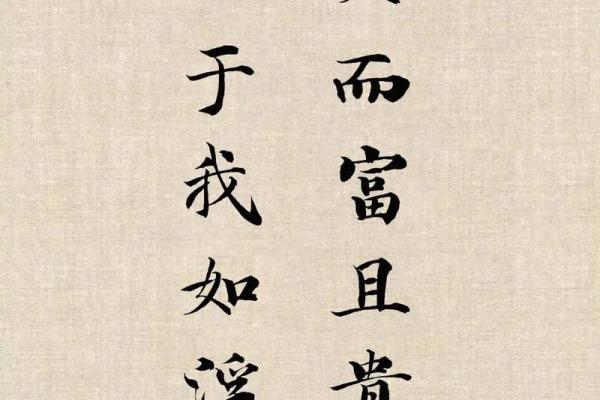 而富且贵
于我如浮